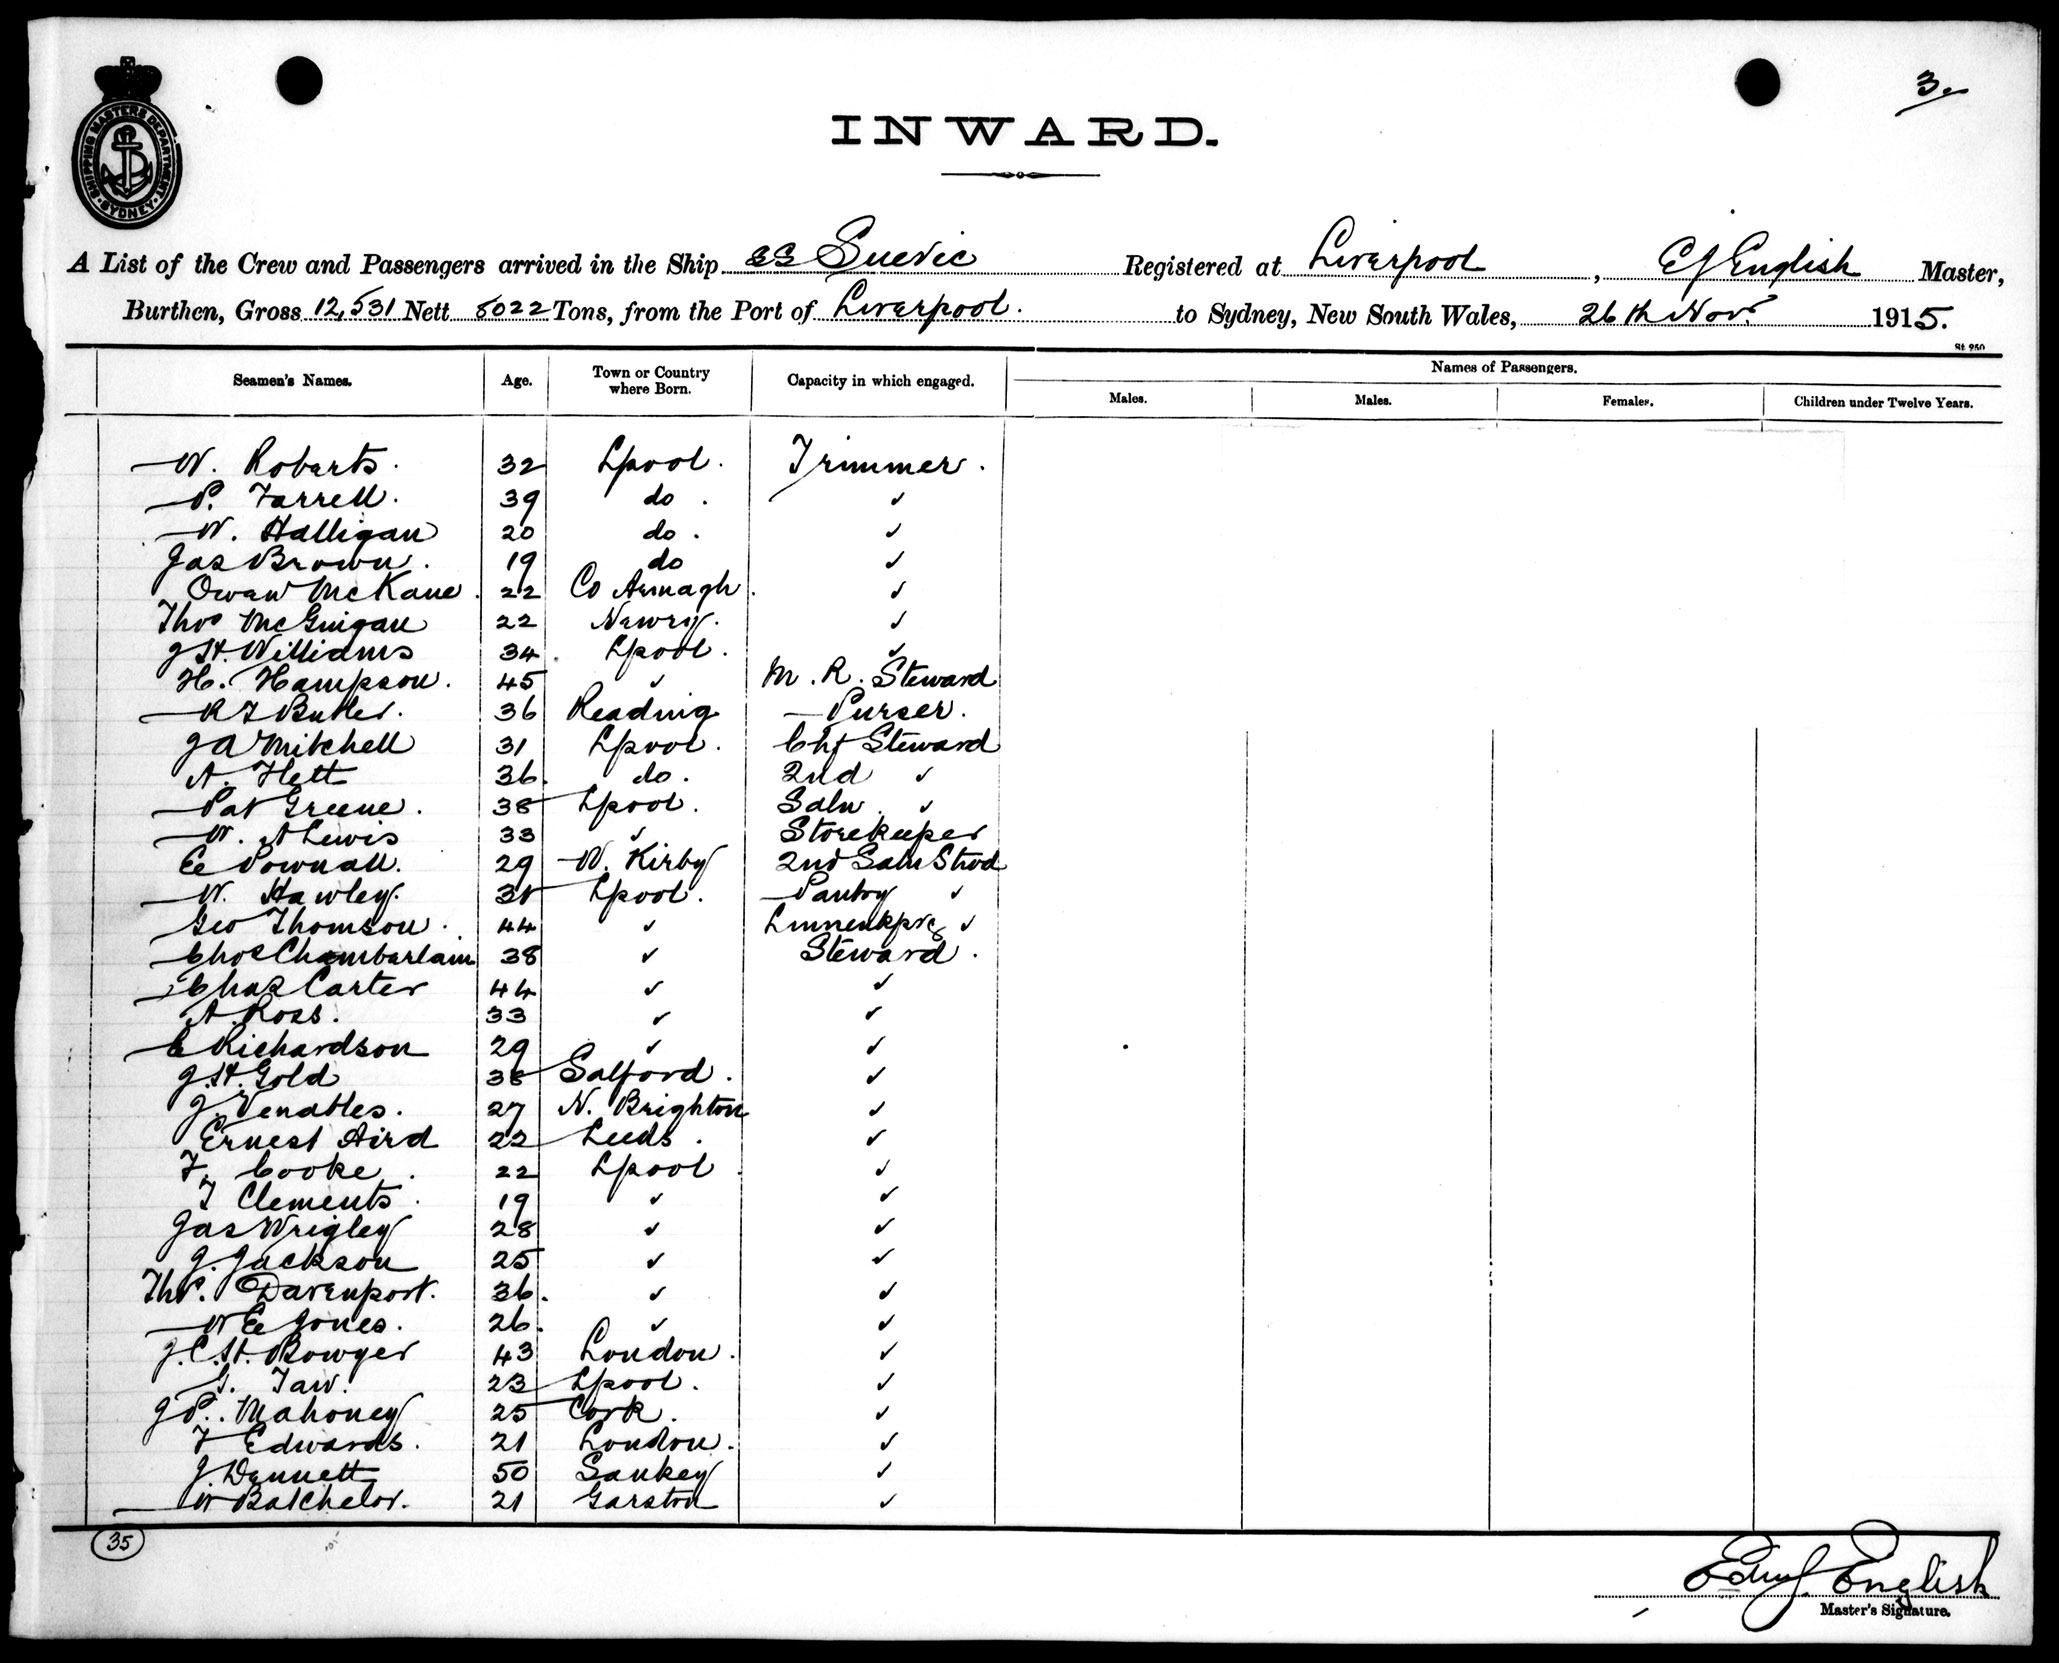 3.
SHIPPING MASTERS DEPARTMENT
SYDNEY
INWARD.
A List of the Crew and Passengers arrived in the Ship SS Suevic Registered at Liverpool, EJ English Master,
Burthen, Gross 12,531 Nett 8022 Tons, from the Port of Liverpool. to Sydney, New South Wales, 26th Nov. 1915.
St. 950
Seamen's Names. Age. Town or Country where Born. Capacity in which engaged. Names of Passengers.
Males. Males. Females. Children under Twelve Years.
W. Roberts. 32 Lpool. Trimmer.
P. Farrell. 39 do. ✓
W. Halligan 20 do. ✓
Jas Brown. 19 do ✓
Owen McKane. 22 Co Armagh. ✓
Thos McGuigan 22 Newry. ✓
J H. Williams 34. Lpool. ✓
H. Hampson. 45 ✓ M. R. Steward
R J Butler. 36 Reading Purser.
J A Mitchell 31 Lpool. Chf Steward
A. Flett 36. do. 2nd ✓
Pat Greene. 38 Lpool. Saln. ✓
W. A Lewis 33 ✓ Storekeeper
E Pownall. 29 W. Kirby 2nd Saln Stwd
W. Hawley. Lpool. Pantry ✓
Geo Thomson. 44 ✓ ✓
Chas Chamberlain 38 ✓ Steward.
Chas Carter 44 ✓ ✓
A. Ross. 33 ✓ ✓
E Richardson 29 ✓ ✓
J. H. Gold 38 Salford. ✓
J. Venables. 27 N. Brighton ✓
Ernest Aird 22 Leeds. ✓
F. Cooke. 22 Lpool. ✓
T Clements. 19 ✓ ✓
Jas Wrigley 28 ✓ ✓
J. Jackson 25 ✓ ✓
Thos. Davenport. 36. ✓ ✓
W E Jones. 26. ✓ ✓
J. C. H. Bowyer 43 London. ✓
Taw. 23 Lpool. ✓
J P. Mahoney 25 Cork. ✓
F Edwards. 21 London. ✓
J. Dennett 50 Sankey ✓
W Batchelor. 21 Garston ✓
35
Edw J. English
Master's Signature.